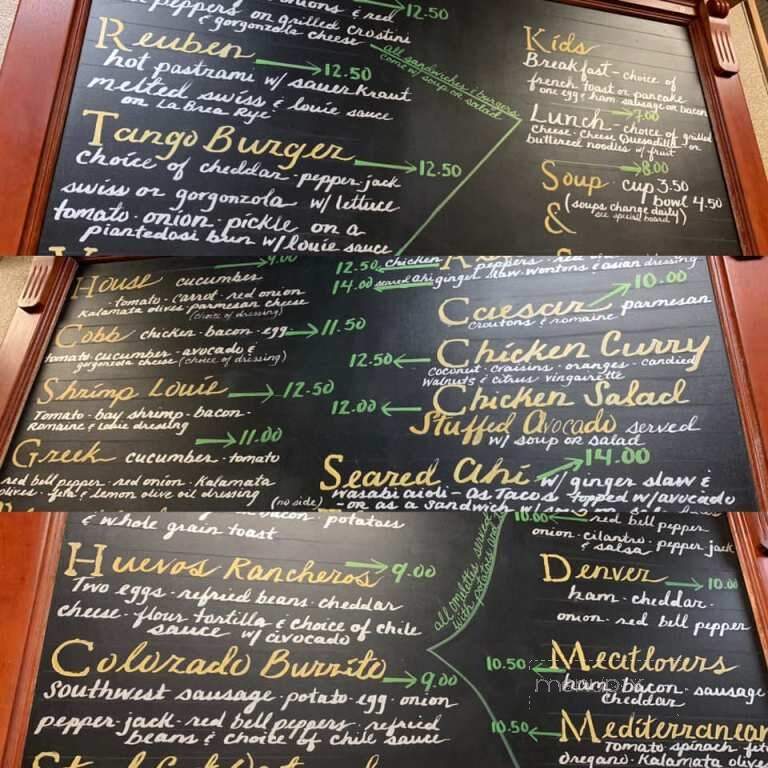 peppers on grilled crostini
& gorgonzola cheese
12.50
Reuben
12.50
hot pastrami w/ sauerkraut
melted swiss & louie sauce
on La Brea Rye
all sandwiches & burgers
come w/ soup or salad
Tango Burger
12.50
choice of cheddar · pepper jack
swiss or gorgonzola w/ lettuce
tomato · onion · pickle on a
piantedosi bun w/ louie sauce
Kids
Breakfast - choice of
french toast or pancake
one egg & ham sausage or bacon
7.00
Lunch - choice of grilled
cheese · cheese Quesadilla or
buttered noodles w/ fruit
8.00
Soup cup 3.50
bowl 4.50
(soups change daily)
see special board
&
House cucumber
9.00
tomato · carrot · red onion
Kalamata olives parmesan cheese
(choice of dressing)
Cobb chicken · bacon · egg
11.50
tomato · cucumber · avocado &
gorgonzola cheese (choice of dressing)
Shrimp Louie
12.50
Tomato · bay shrimp · bacon ·
Romaine & louie dressing
11.00
Greek cucumber · tomato
red bell pepper · red onion · Kalamata
olives · feta & lemon olive oil dressing
12.50 chicken
14.00 seared ahi
ginger slaw · wontons & asian dressing
10.00
Caesar parmesan
croutons & romaine
12.50
Chicken Curry
coconut · craisins · oranges · candied
walnuts & citrus vingairette
12.00
Chicken Salad
Stuffed Avocado served
w/ soup or salad
14.00
Seared Ahi w/ ginger slaw &
wasabi aioli - as Tacos topped w/ avocado
(no side) - or as a sandwich w/
bacon · potatoes
& whole grain toast
Huevos Rancheros
9.00
Two eggs · refried beans · cheddar
cheese · flour tortilla & choice of chile
sauce w/ avocado
Colorado Burrito
9.00
Southwest sausage · potato · egg · onion
pepper jack · red bell peppers · refried
beans & choice of chile sauce
all omelettes served
with potatoes
10.00
red bell pepper
onion · cilantro · pepper jack
& salsa
Denver
10.00
ham · cheddar ·
onion · red bell pepper
10.50
Meatlovers
ham · bacon · sausage
cheddar
menupix
10.50
Mediterranean
Tomato spinach feta
oregano · Kalamata olives